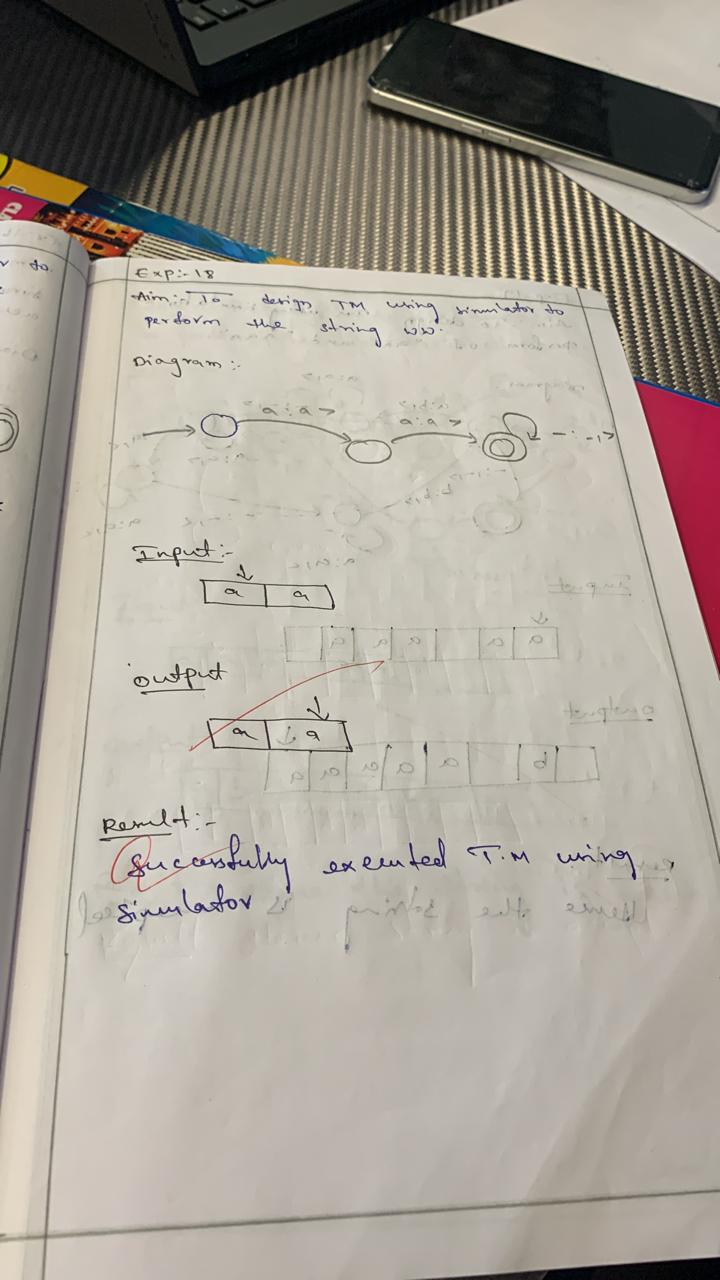 Exp:- 18
Aim:- To design TM using simulator to
perform the string ww.
Diagram:-
a:a>
a:a>
-:-,>
Input:-
a a
output
a a
Result:-
Successfully executed T.M using
simulator